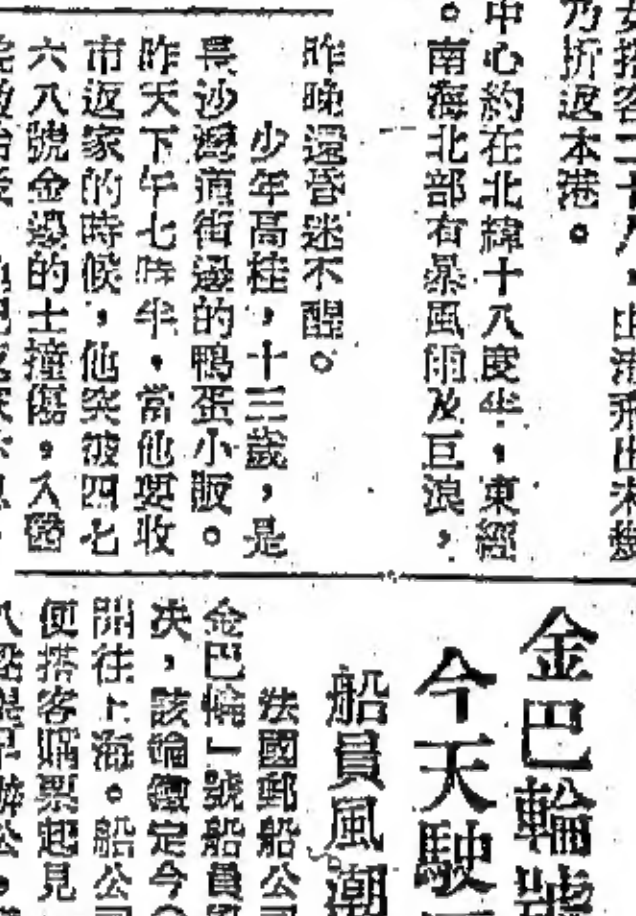 女搭客二十八
乃折返本港。
中心約在北緯十八度半，東經
。南海北部有暴風雨及巨浪，
昨晚還昏迷不醒。
少年高桂，十三歲，是
長沙灣道街邊的鴨蛋小販。
昨天下午七時半，當他要收
市返家的時候，他突被四七
六八號金邊的士撞傷，入醫
金巴輪號
今天駛
船員風潮
法國郵船公司
金巴輪」號船員風
决，該輪鐵定今
開往上海。船公司
便搭客購票起見
辦公，